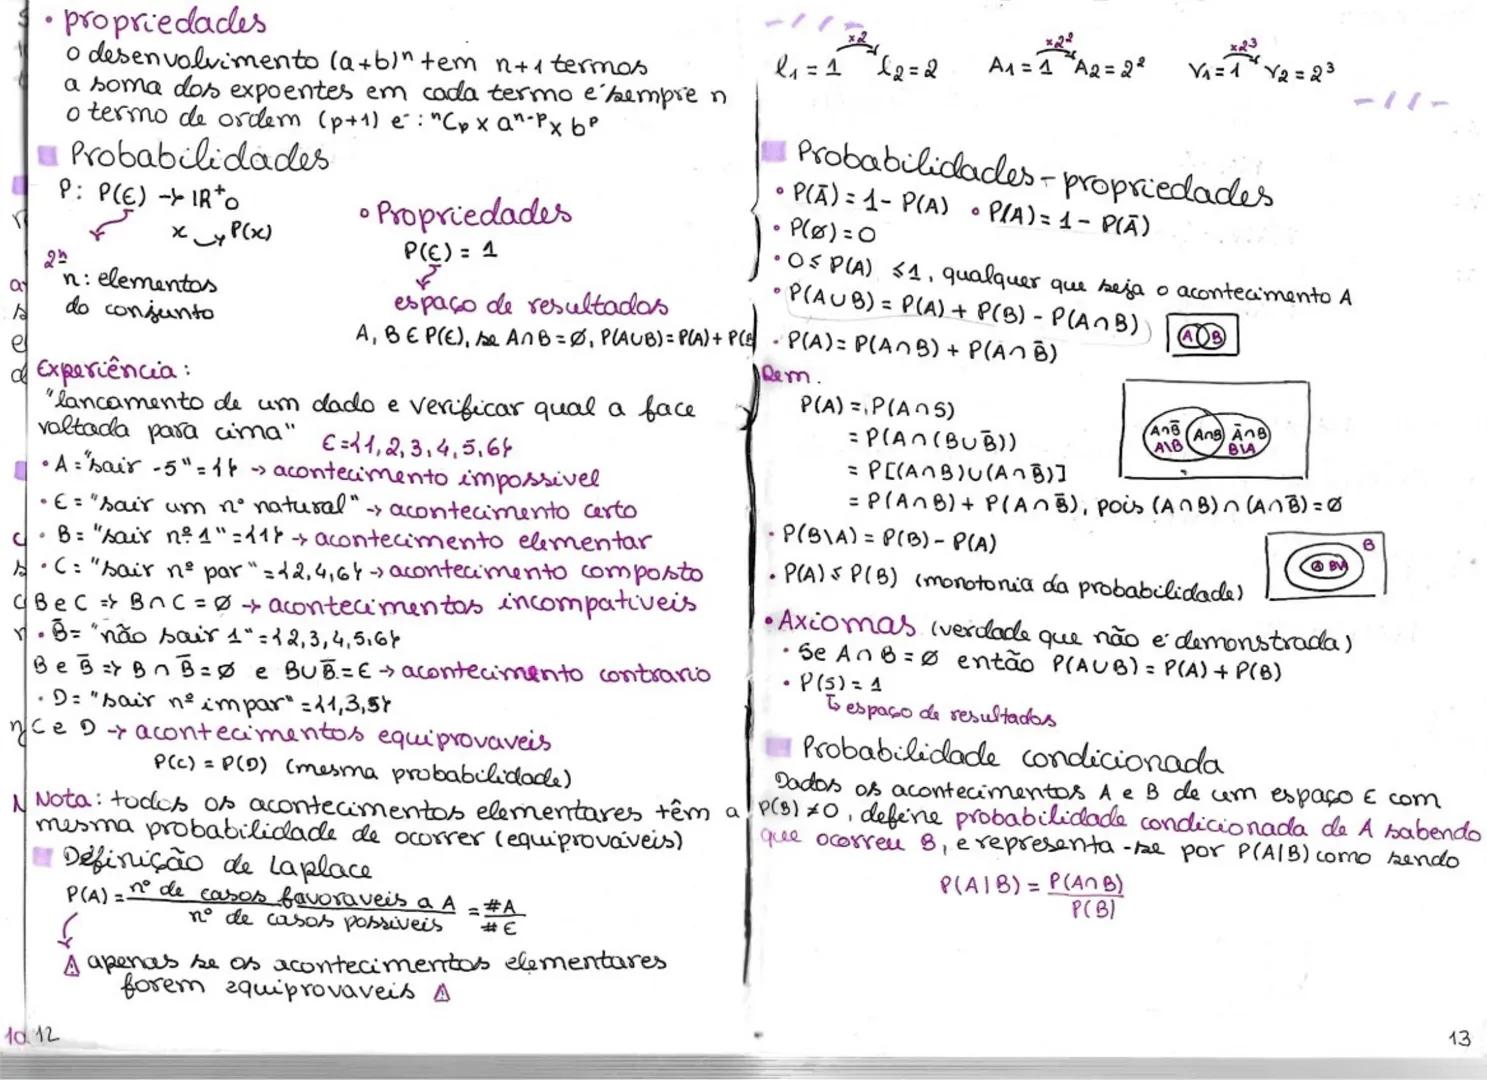 • propriedades
o desenvolvimento (a+b)ⁿ tem n+1 termos
a soma dos expoentes em cada termo é sempre n
o termo de ordem (p+1) é: ⁿCp x aⁿ⁻ᵖ x bᵖ
Probabilidades
P: P(Є) → IR⁺₀
x ⤳ P(x)
2ⁿ
n: elementos
do conjunto
• Propriedades
P(Є) = 1
espaço de resultados
A, B Є P(Є), se A∩B=Ø, P(AUB)=P(A)+P(B
Experiência:
"lancamento de um dado e verificar qual a face
voltada para cima"
Є={1,2,3,4,5,6}
• A="sair -5"={} → acontecimento impossivel
• Є="sair um nº natural" → acontecimento certo
• B="sair nº 1"={1} → acontecimento elementar
• C="sair nº par"={2,4,6} → acontecimento composto
B e C => B∩C=Ø → acontecimentos incompativeis
• B̄="não sair 1"={2,3,4,5,6}
B e B̄ => B∩B̄=Ø e BUB̄=Є → acontecimento contrario
• D="sair nº impar"={1,3,5}
C e D → acontecimentos equiprovaveis
P(C) = P(D) (mesma probabilidade)
Nota: todos os acontecimentos elementares têm a
mesma probabilidade de ocorrer (equiprováveis)
Definição de Laplace
P(A) = nº de casos favoraveis a A / nº de casos possiveis = #A / #Є
⚠ apenas se os acontecimentos elementares
forem equiprovaveis ⚠
10 12
-//-
x2 x2² x2³
l₁=1 l₂=2 A₁=1 A₂=2² V₁=1 V₂=2³
-//-
Probabilidades - propriedades
• P(Ā) = 1- P(A) • P(A) = 1 - P(Ā)
• P(Ø)=0
• 0≤ P(A) ≤1, qualquer que seja o acontecimento A
• P(AUB) = P(A) + P(B) - P(A∩B)
A B
• P(A)= P(A∩B) + P(A∩B̄)
Dem.
P(A) = P(A∩S)
= P(A∩(BUB̄))
= P[(A∩B)U(A∩B̄)]
= P(A∩B) + P(A∩B̄), pois (A∩B)∩(A∩B̄)=Ø
A∩B̄ A∩B Ā∩B
A\B B\A
• P(B\A) = P(B) - P(A)
B
A B\A
• P(A) ≤ P(B) (monotonia da probabilidade)
• Axiomas (verdade que não é demonstrada)
• Se A∩B=Ø então P(AUB)= P(A) + P(B)
• P(S)=1
↳ espaço de resultados
Probabilidade condicionada
Dados os acontecimentos A e B de um espaço Є com
P(B)≠0, define probabilidade condicionada de A sabendo
que ocorreu B, e representa-se por P(A|B) como sendo
P(A|B) = P(A∩B) / P(B)
13